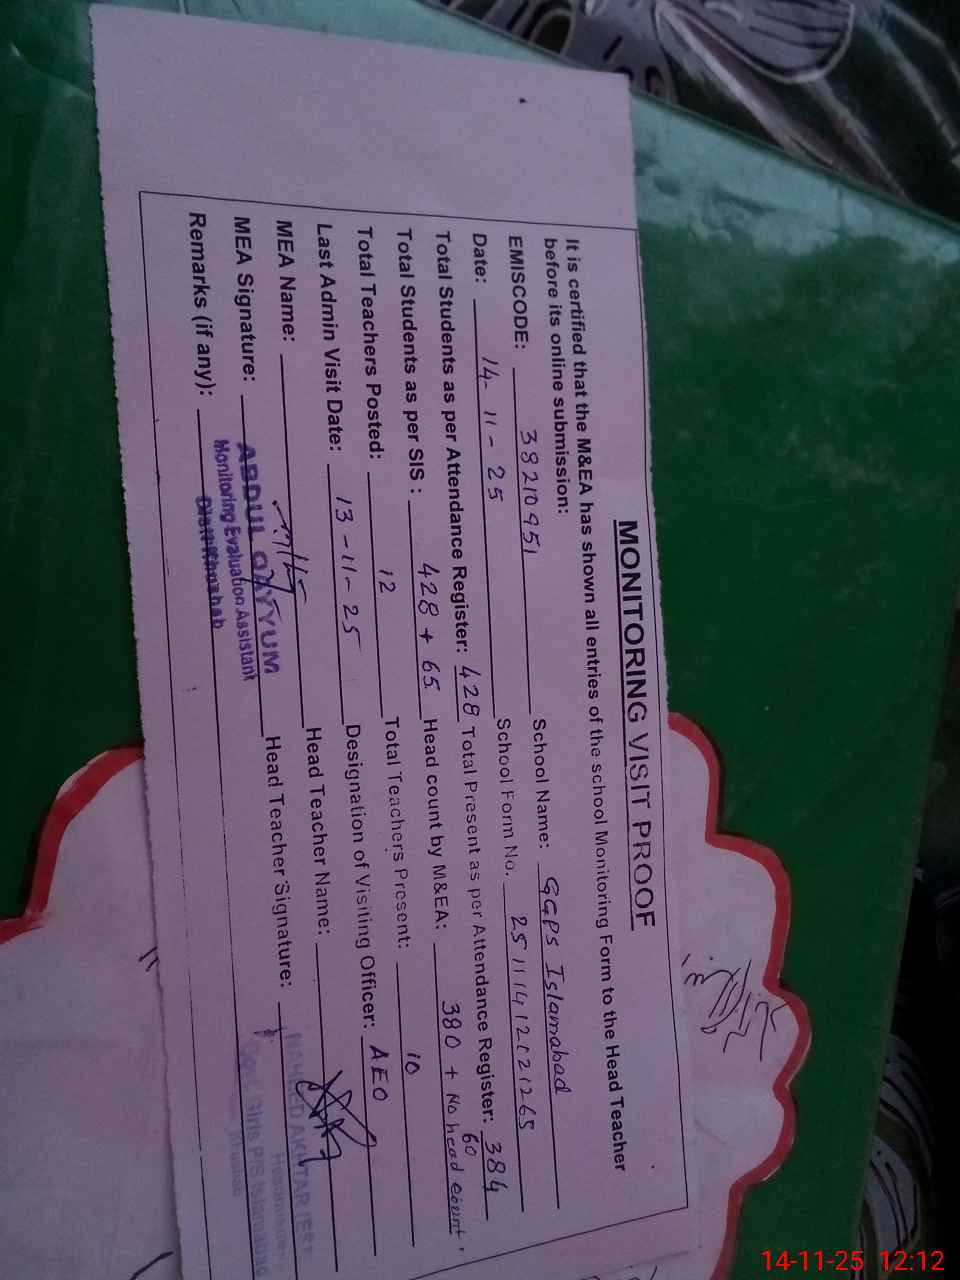 MONITORING VISIT PROOF
It is certified that the M&EA has shown all entries of the school Monitoring Form to the Head Teacher
before its online submission:
EMISCODE: 38210951 School Name: GGPS Islamabad
Date: 14-11-25 School Form No. 25111412121265
Total Students as per Attendance Register: 428 Total Present as per Attendance Register: 384
Total Students as per SIS : 428 + 65 Head count by M&EA: 380 + No head count. 60
Total Teachers Posted: 12 Total Teachers Present: 10
Last Admin Visit Date: 13-11-25 Designation of Visiting Officer: AEO
MEA Name: Head Teacher Name:
MEA Signature: ABDUL QAYYUM Head Teacher Signature: NAHEED AKHTAR
Monitoring Evaluation Assistant
Remarks (if any): Distt: Khushab
Govt. Girls P/S Islamabad
Khushab
14-11-25 12:12